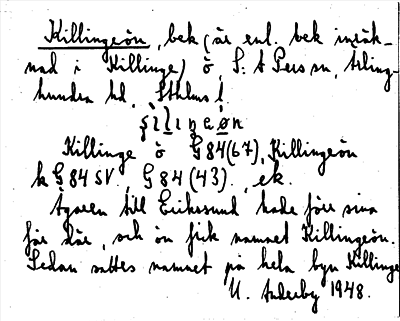 Killingeön, bek (är enl. bek inräk-
nad i Killinge) ö, S:t Pers sn, Ärling-
hundra hd, Sthlms l.
Killinge ö G 84(67), Killingeön
k G 84 SV., G 84 (43)., ek.
Ägaren till Erikssund hade förr sina
får där, och ön fick namnet Killingeön.
Sedan sattes namnet på hela byn Killinge
U. Anderby 1948.